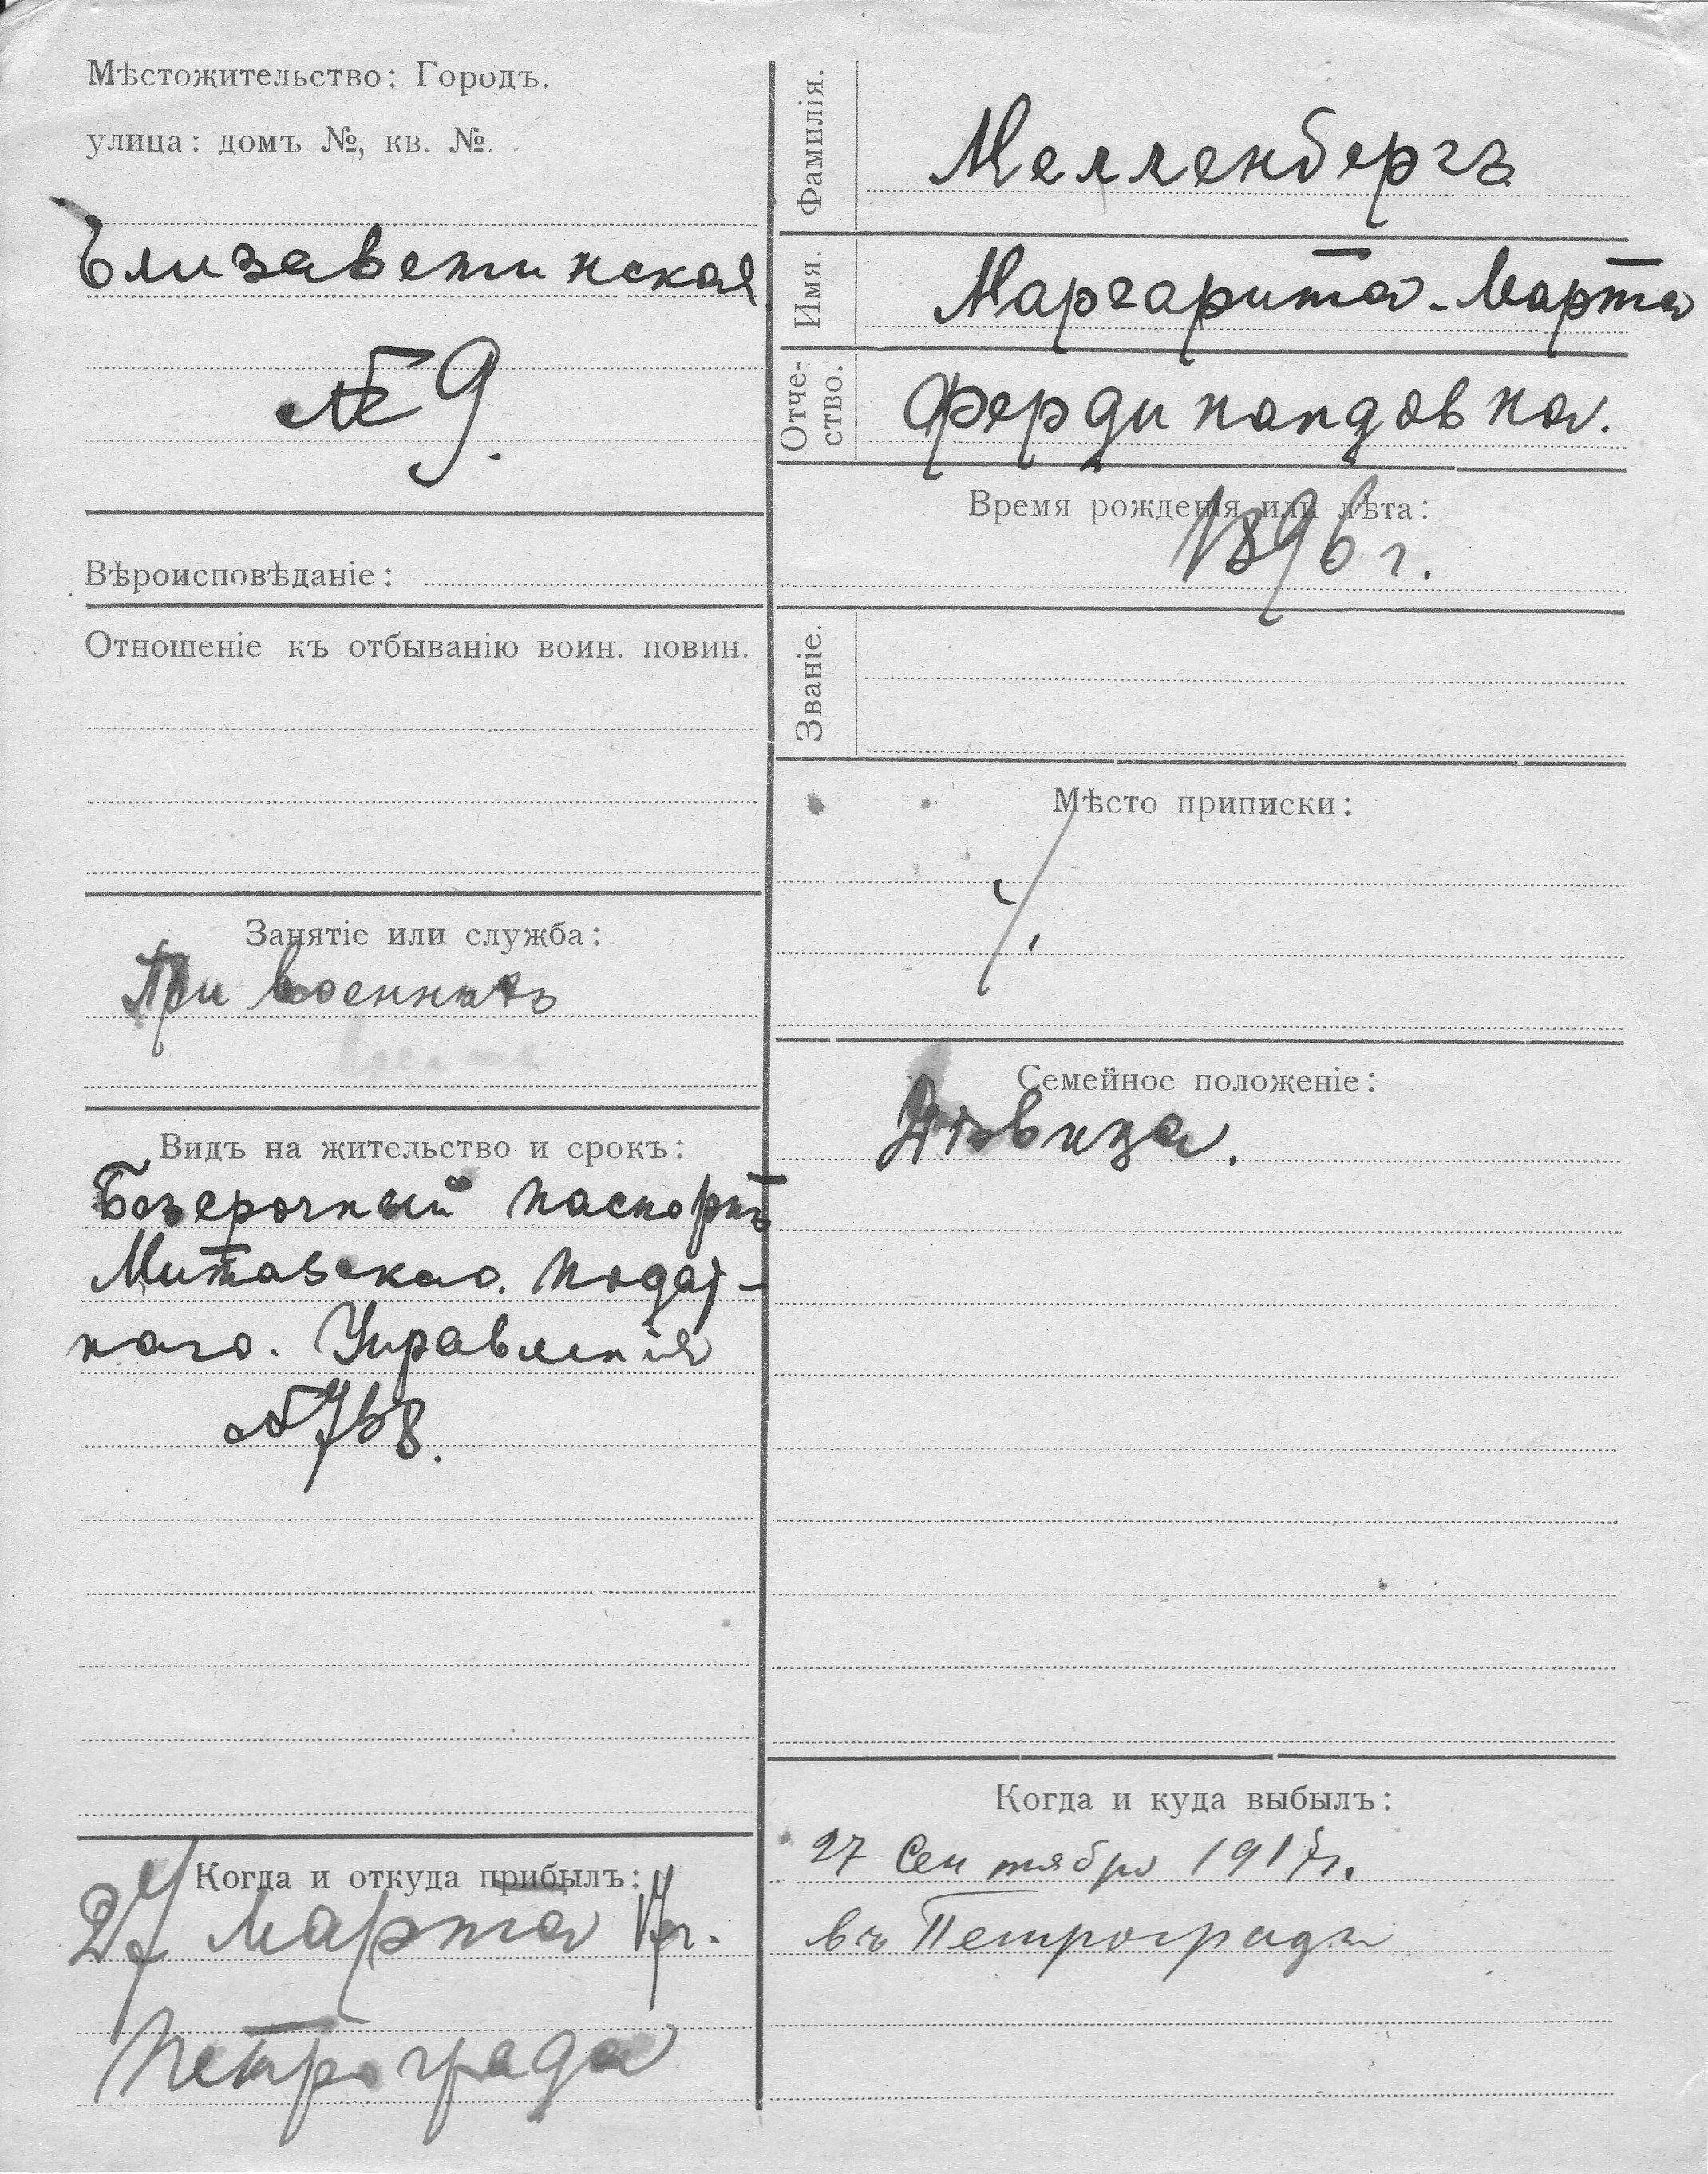 Мѣстожительство: Городъ.
улица: домъ №, кв. №.
Елизаветинская
№ 9.
Вѣроисповѣданіе:
Отношеніе къ отбыванію воин. повин.
Занятіе или служба:
При военныхъ
Видъ на жительство и срокъ:
Безсрочный паспортъ
Митавскаго. Подат-
наго. Управленія
№ 768.
Когда и откуда прибылъ:
27 Марта 17 г.
Петрограда
Фамилія.
Мелленбергъ
Имя.
Маргарита-Марта
Отче-
ство.
Фердинандовна.
Время рожденія или лѣта:
1896 г.
Званіе.
Мѣсто приписки:
Семейное положеніе:
Дѣвица.
Когда и куда выбылъ:
27 Сентября 1917 г.
въ Петроградъ